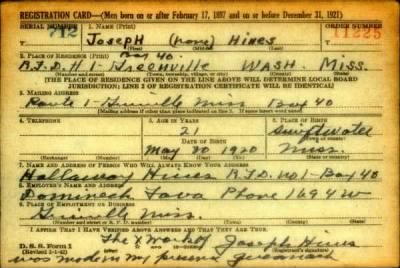 REGISTRATION CARD—(Men born on or after February 17, 1897 and on or before December 31, 1921)
SERIAL NUMBER 1. NAME (Print) ORDER NUMBER
712 Joseph (none) Hines 11225
(First) (Middle) (Last)
2. PLACE OF RESIDENCE (Print) Box 40
R.F.D # 1 - Greenville WASH. Miss.
(Number and street) (Town, township, village, or city) (County) (State)
[THE PLACE OF RESIDENCE GIVEN ON THE LINE ABOVE WILL DETERMINE LOCAL BOARD
JURISDICTION; LINE 2 OF REGISTRATION CERTIFICATE WILL BE IDENTICAL]
3. MAILING ADDRESS
Route 1 - Greenville Miss Box 40
(Mailing address if other than place indicated on line 2. If same insert word same)
4. TELEPHONE 5. AGE IN YEARS 6. PLACE OF BIRTH
21
DATE OF BIRTH
May 20 1920 Miss.
(Exchange) (Number) (Mo.) (Day) (Yr.) (State or country)
7. NAME AND ADDRESS OF PERSON WHO WILL ALWAYS KNOW YOUR ADDRESS
Hines R.F.D. no 1 - Box 40
8. EMPLOYER'S NAME AND ADDRESS
Phone 1694 W
9. PLACE OF EMPLOYMENT OR BUSINESS
Greenville Miss.
(Number and street or R. F. D. number) (Town) (County) (State)
I AFFIRM THAT I HAVE VERIFIED ABOVE ANSWERS AND THAT THEY ARE TRUE.
D. S. S. Form 1 The X Mark of Joseph Hines
was made in my presence